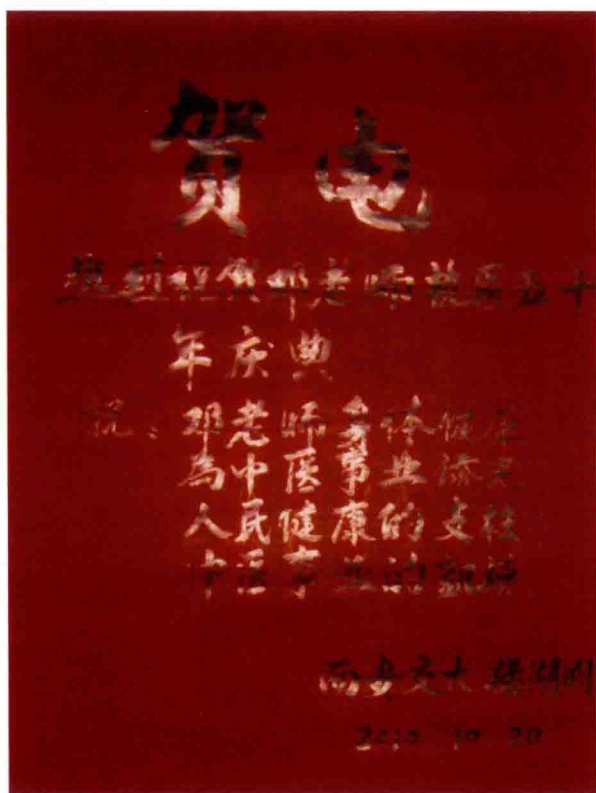 贺电
热烈祝贺邓老师就医五十
年庆典
祝：邓老师身体健康
為中医事业添光
人民健康的支柱
中医事业的
西安交大
2010 10 20